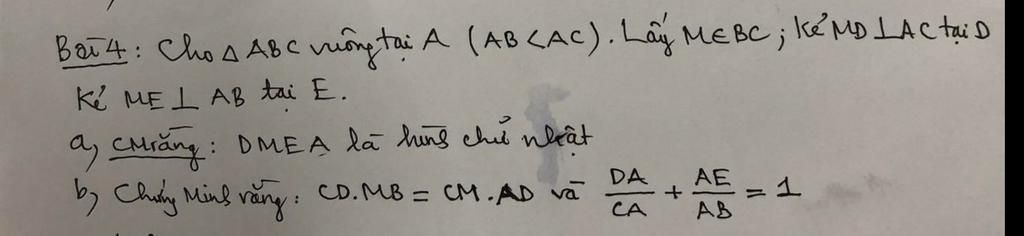 Bài 4: Cho △ ABC vuông tại A (AB < AC). Lấy M ∈ BC; Kẻ MD ⊥ AC tại D
Kẻ ME ⊥ AB tại E.
a, CMrằng: DMEA là hình chữ nhật
b, Chứng Minh rằng: CD.MB = CM.AD và DA/CA + AE/AB = 1